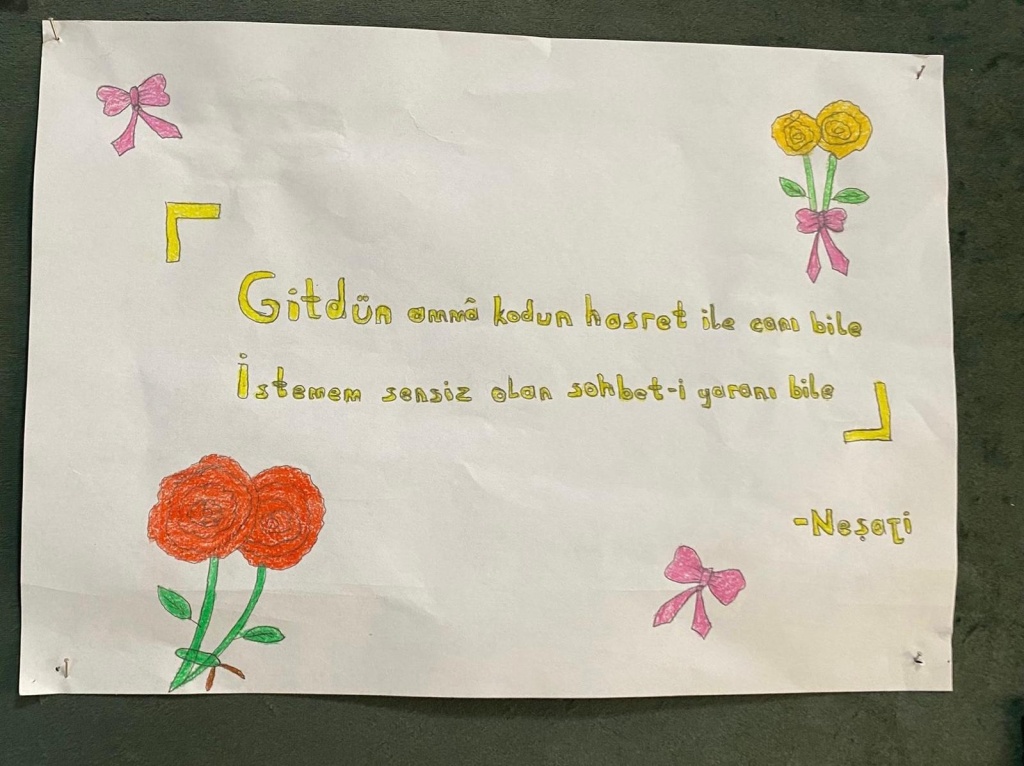 Gitdün ammâ kodun hasret ile canı bile
İstemem sensiz olan sohbet-i yaranı bile
-Neşati